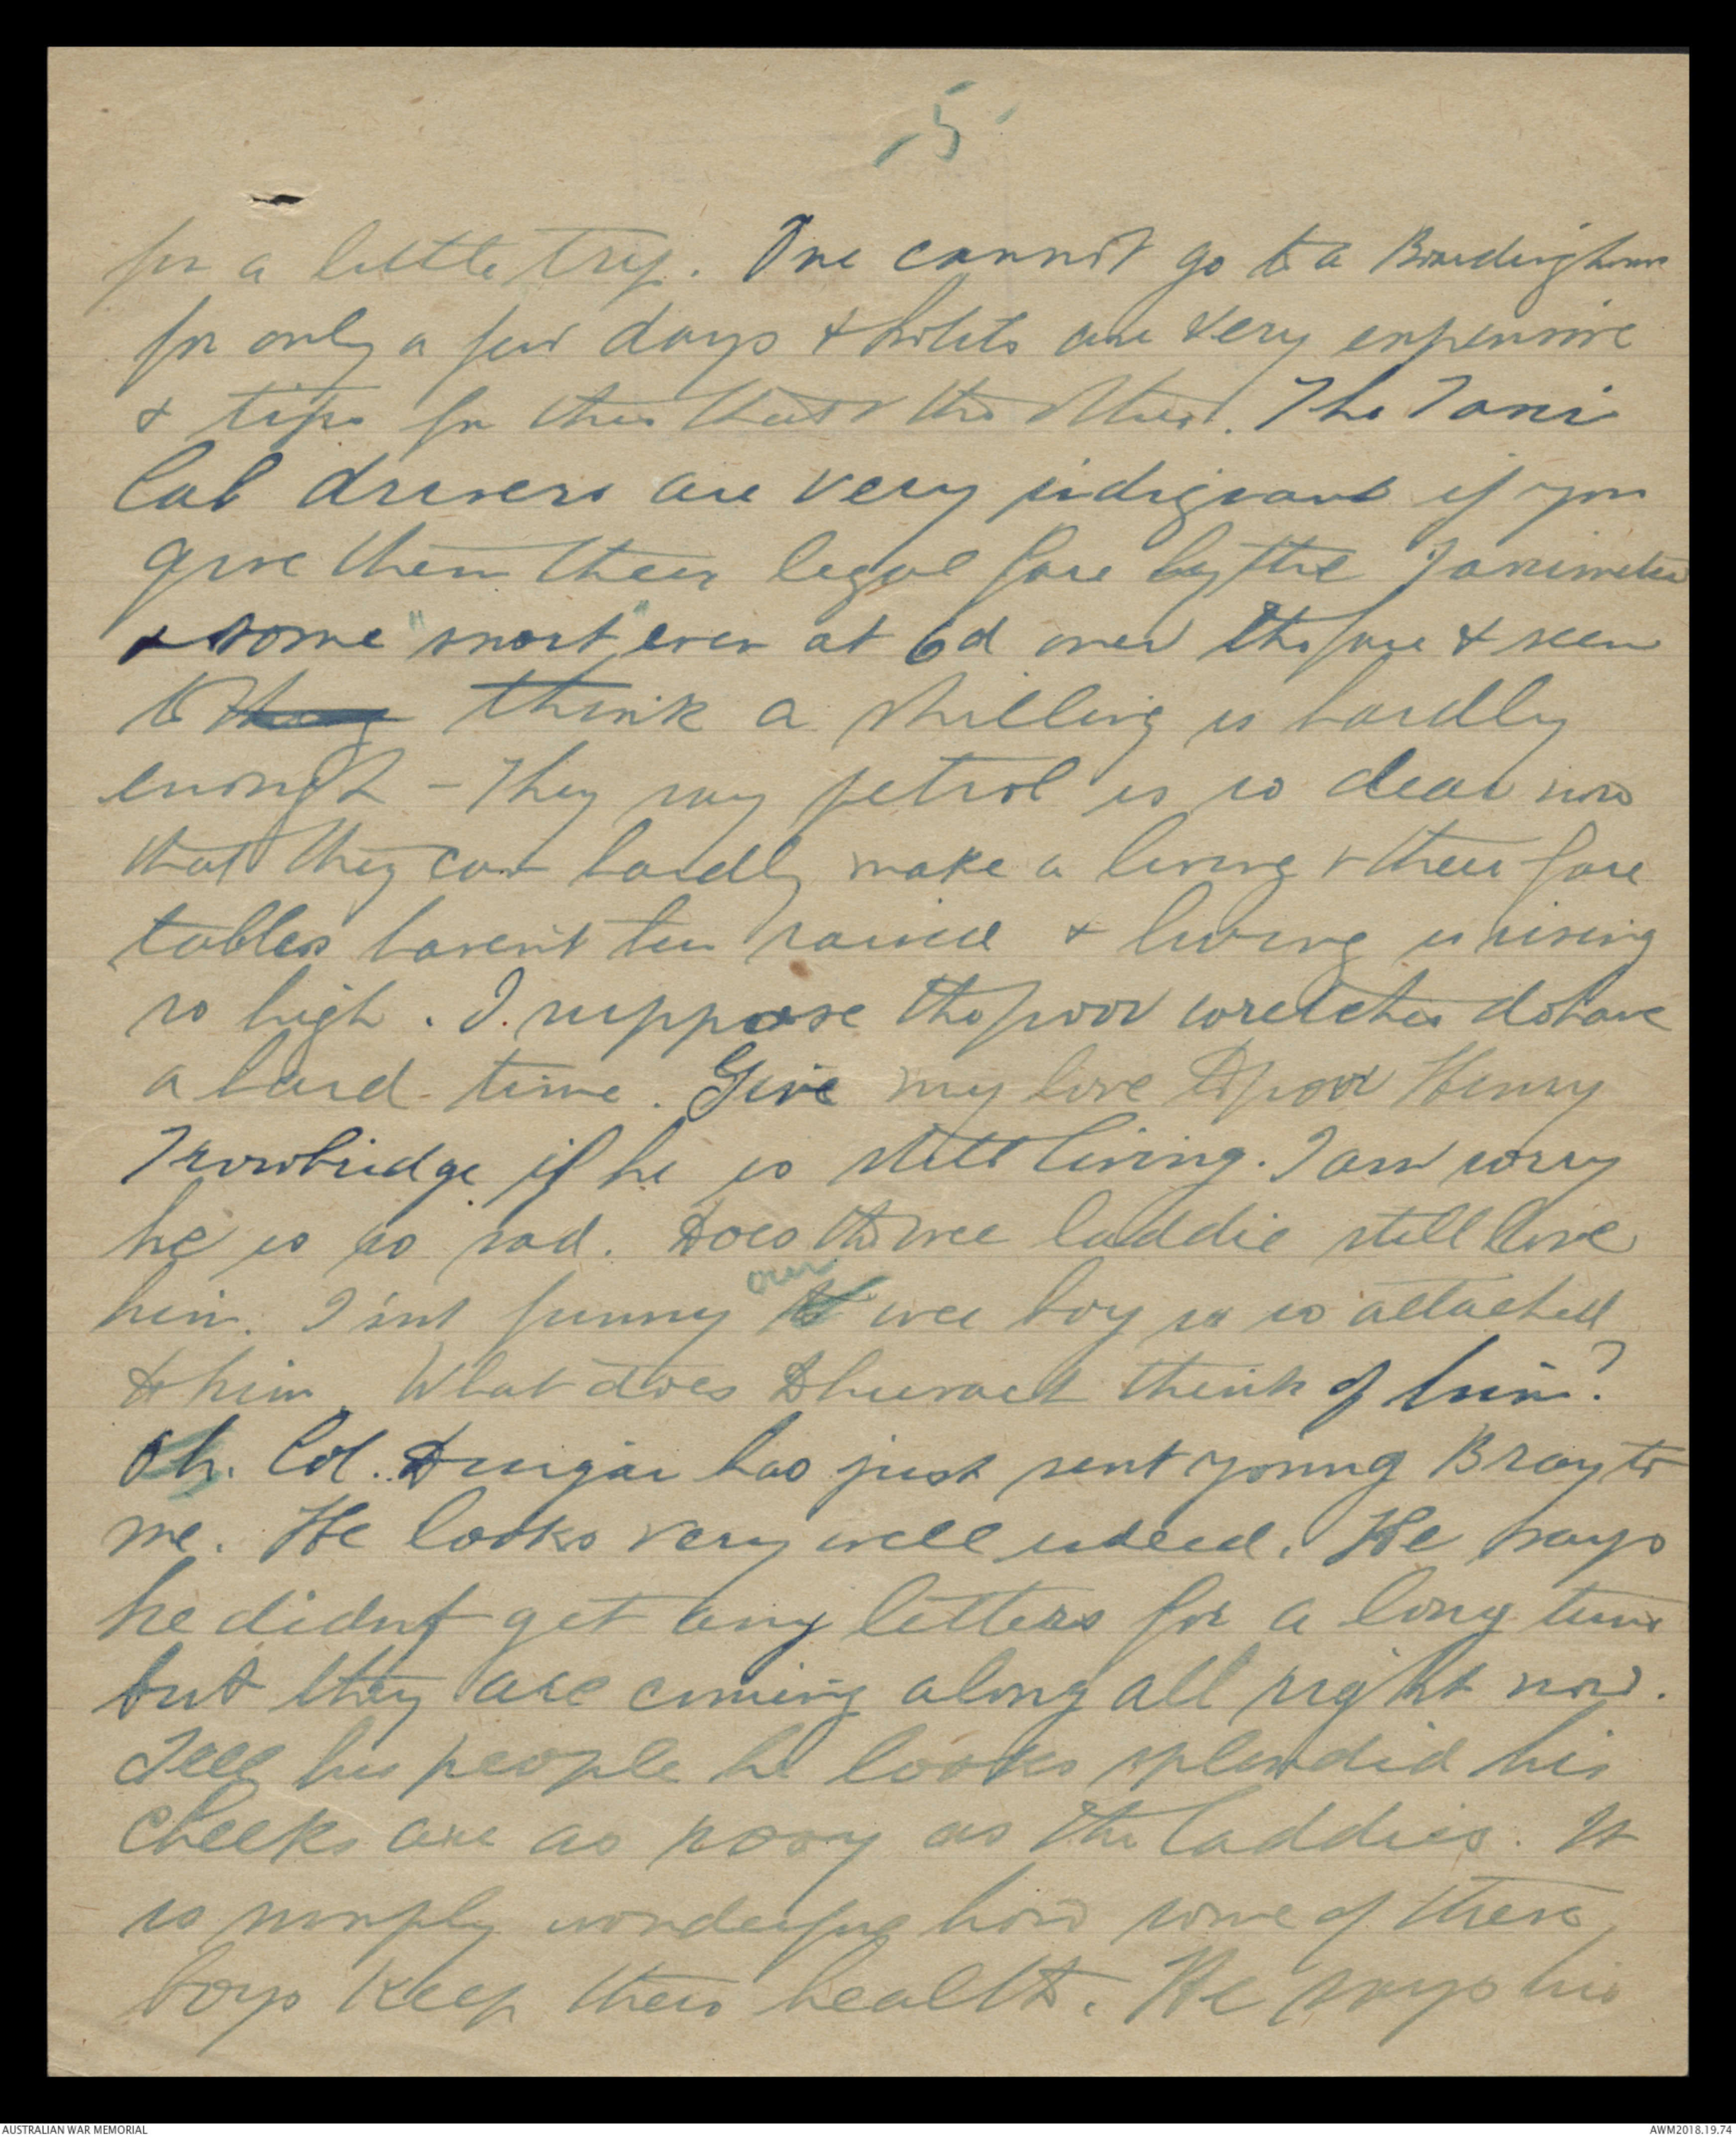 5
for a little trip. One cannot go to a Boardinghouse
for only a few days & hotels are very expensive
& tips for this that & the other. The Taxi
Cab drivers are very indignant if you
give them their legal fare by the Taximeter
& some "snort" even at 6d over the fare & seem
to think a shilling is hardly
enough - They say petrol is so dear now
that they can hardly make a living & their fare
tables haven't been raised & living is rising
so high. I suppose the poor wretches do have
a hard time. Give my love to poor Henry
Trowbridge if he is still living. I am sorry
he is so sad. Does the wee laddie still love
him. Isint funny our wee boy is so attached
to him. What does think of him?
Oh. Col. Duigan has just sent young Bray to
me. He looks very well indeed. He says
he didnt get any letters for a long time
but they are coming along all right now.
Tell his people he looks splendid his
cheeks are as rosy as the laddies. It
is simply wonderful how some of these
boys keep their health. He says his
AUSTRALIAN WAR MEMORIAL
AWM2018.19.74